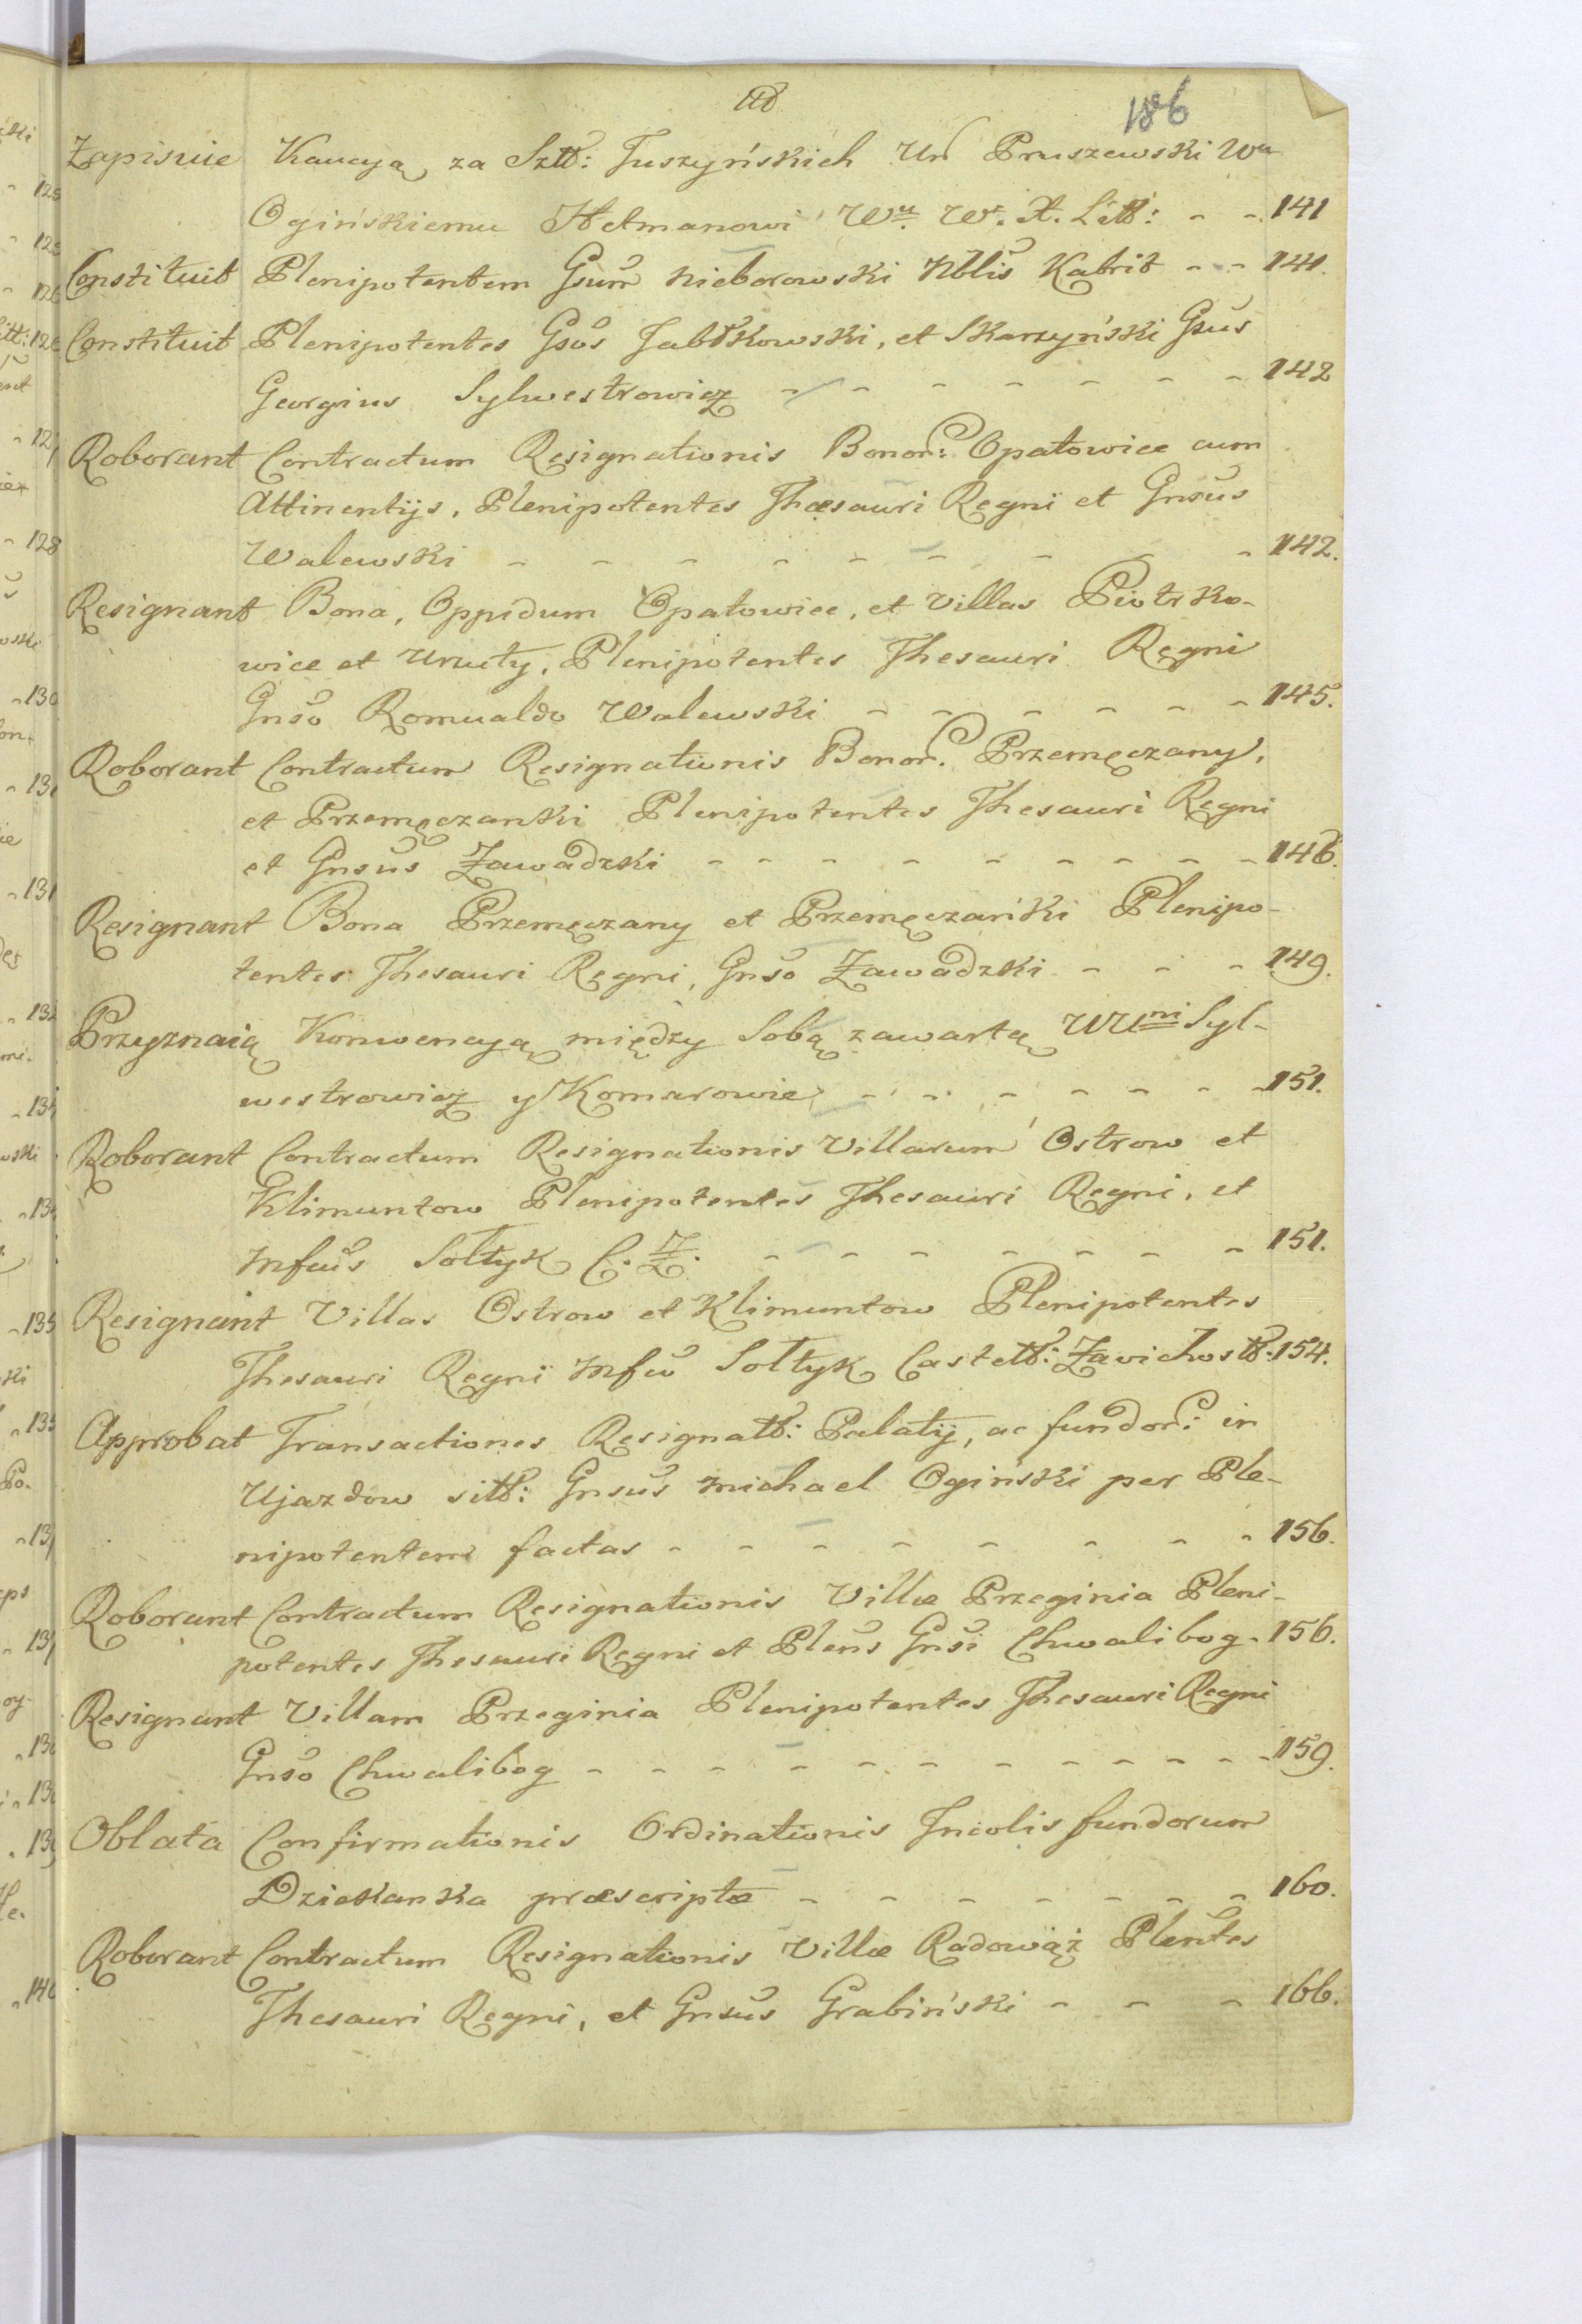 186
Zapisuie Kaucyą za Sztt: Tuszyńskich Ur Pruszewski Wu
Ogińskiemu Hetmanowi Wu. W. X. Litt: - - 141
Constituit Plenipotentem Gsum Nieborowski Nblis Kabrit - - 141.
Constituit Plenipotentes Gsos Jabłkowski, et Skarzyński Gsus
Georgius Sylwestrowicz - - - - - - - 142
Roborant Contractum Resignationis Bonor: Opatowice cum
Attinentijs, Plenipotentes Thæsauri Regni et Gnsus
Walewski - - - - - - - - 142.
Resignant Bona, Oppidum Opatowiec, et Villas Piotrko-
wice et Urzuty, Plenipotentes Thesauri Regni
Gnso Romualdo Walewski - - - - - - 145.
Roborant Contractum Resignationis Bonor. Przemęczany,
et Przemęczanki Plenipotentes Thesauri Regni
et Gnsus Zawadzki - - - - - - - - 146.
Resignant Bona Przemęczany et Przemęczańki Plenipo-
tentes Thesauri Regni, Gnso Zawadzki - - - 149.
Przyznaią Konwencyą między Sobą zawartą UUni Syl-
westrowicz y Komarowie - - - - - - - 151.
Roborant Contractum Resignationis Villarum Ostrow et
Klimuntow Plenipotentes Thesauri Regni, et
Mfcus Sołtyk C. Z. - - - - - - - 151.
Resignant Villas Ostrow et Klimuntow Plenipotentes
Thesauri Regni Mfco Sołtyk Castett: Zavichostt: 154.
Approbat Transactiones Resignatt: Palatij, ac fundor: in
Ujazdow sitt: Gnsus Michael Ogiński per Ple-
nipotentem factas - - - - - - - - 156.
Roborant Contractum Resignationis Villæ Przeginia Pleni-
potentes Thesauri Regni et Plens Gnsi Chwalibog - 156.
Resignant Villam Przeginia Plenipotentes Thesauri Regni
Gnso Chwalibog - - - - - - - - - - 159.
Oblata Confirmationis Ordinationis Incolis fundorum
Dziekanka præscriptæ - - - - - - - 160.
Roborant Contractum Resignationis Villæ Radowąż Plentes
Thesauri Regni, et Gnsus Grabiński - - - 166.